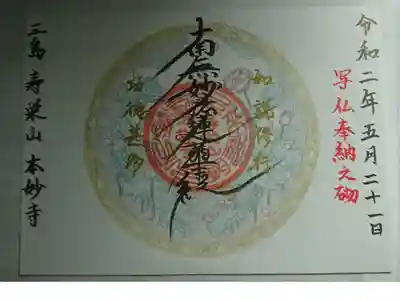 令和二年五月二十一日
写仏奉納之砌
如説修行
南無妙法蓮華経
功徳甚多
三島 寿栄山 本妙寺